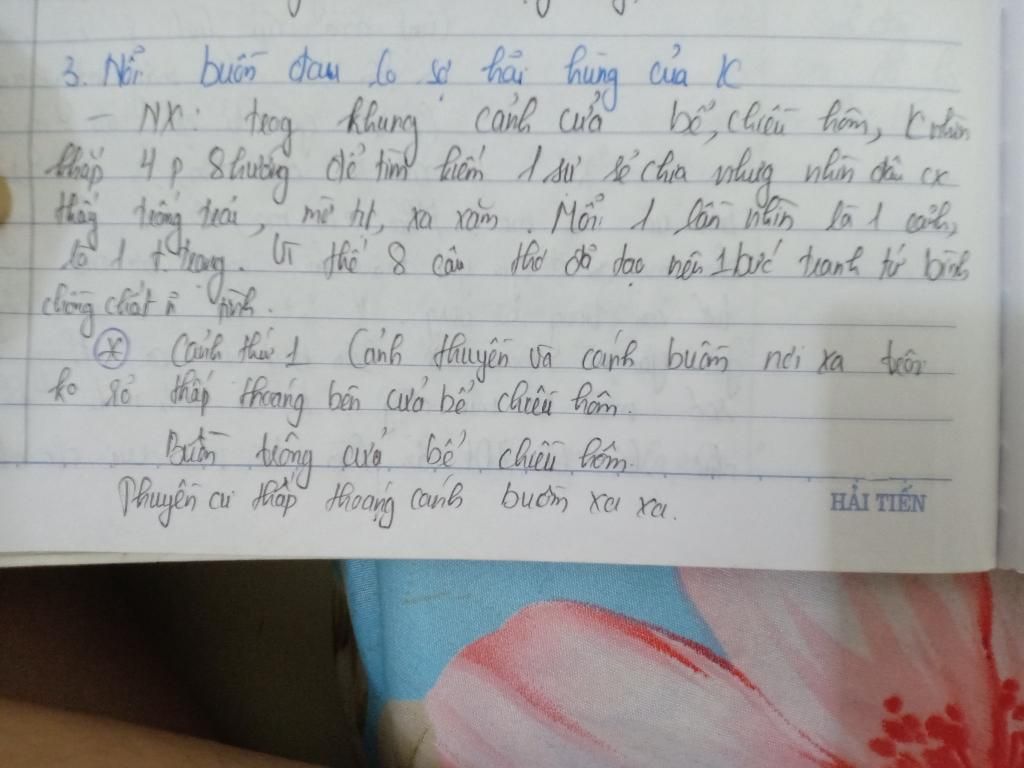 3. Nỗi buồn đau lo sợ hãi hùng của K
- NX: trog khung cảnh cửa bể, chiều hôm, K nhìn
khắp 4 p 8 hướng để tìm kiếm 1 sự sẻ chia nhưg nhìn đâu cx
thấy trống trải, mờ mịt, xa xăm. Mỗi 1 lần nhìn là 1 cảnh,
là 1 t.trạng. Vì thế 8 câu thơ đã tạo nên 1 bức tranh tứ bình
chồng chất n tình.
* Cảnh thứ 1 Cảnh thuyền và cánh buồm nơi xa trôi
ko rõ thấp thoáng bên cửa bể chiều hôm.
Buồn trông cửa bể chiều hôm.
Thuyền ai thấp thoáng cánh buồm xa xa.
HẢI TIẾN